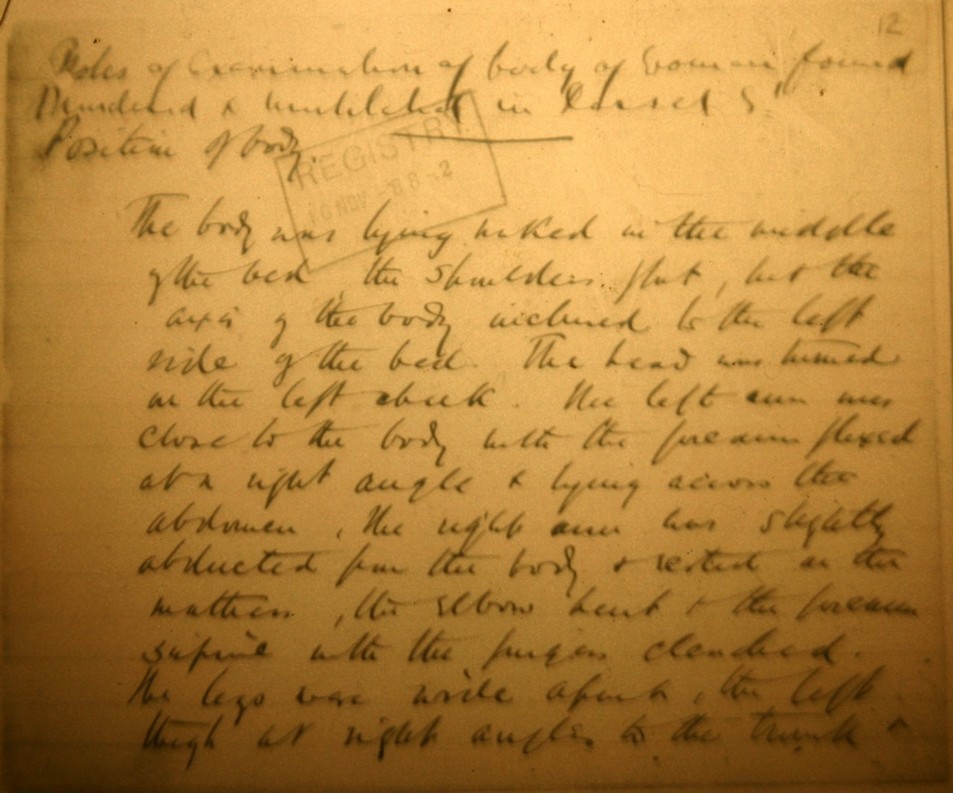 12
Notes of Examination of body of Woman found
Murdered & Mutilated in Dorset St
Position of body.
REGISTRY
10 NOV 88-2
The body was lying naked in the middle
of the bed, the shoulders flat, but the
axis of the body inclined to the left
side of the bed. The head was turned
on the left cheek. The left arm was
close to the body with the forearm flexed
at a right angle & lying across the
abdomen, the right arm was slightly
abducted from the body & rested on the
mattress, the elbow bent & the forearm
supine with the fingers clenched.
The legs were wide apart, the left
thigh at right angles to the trunk &